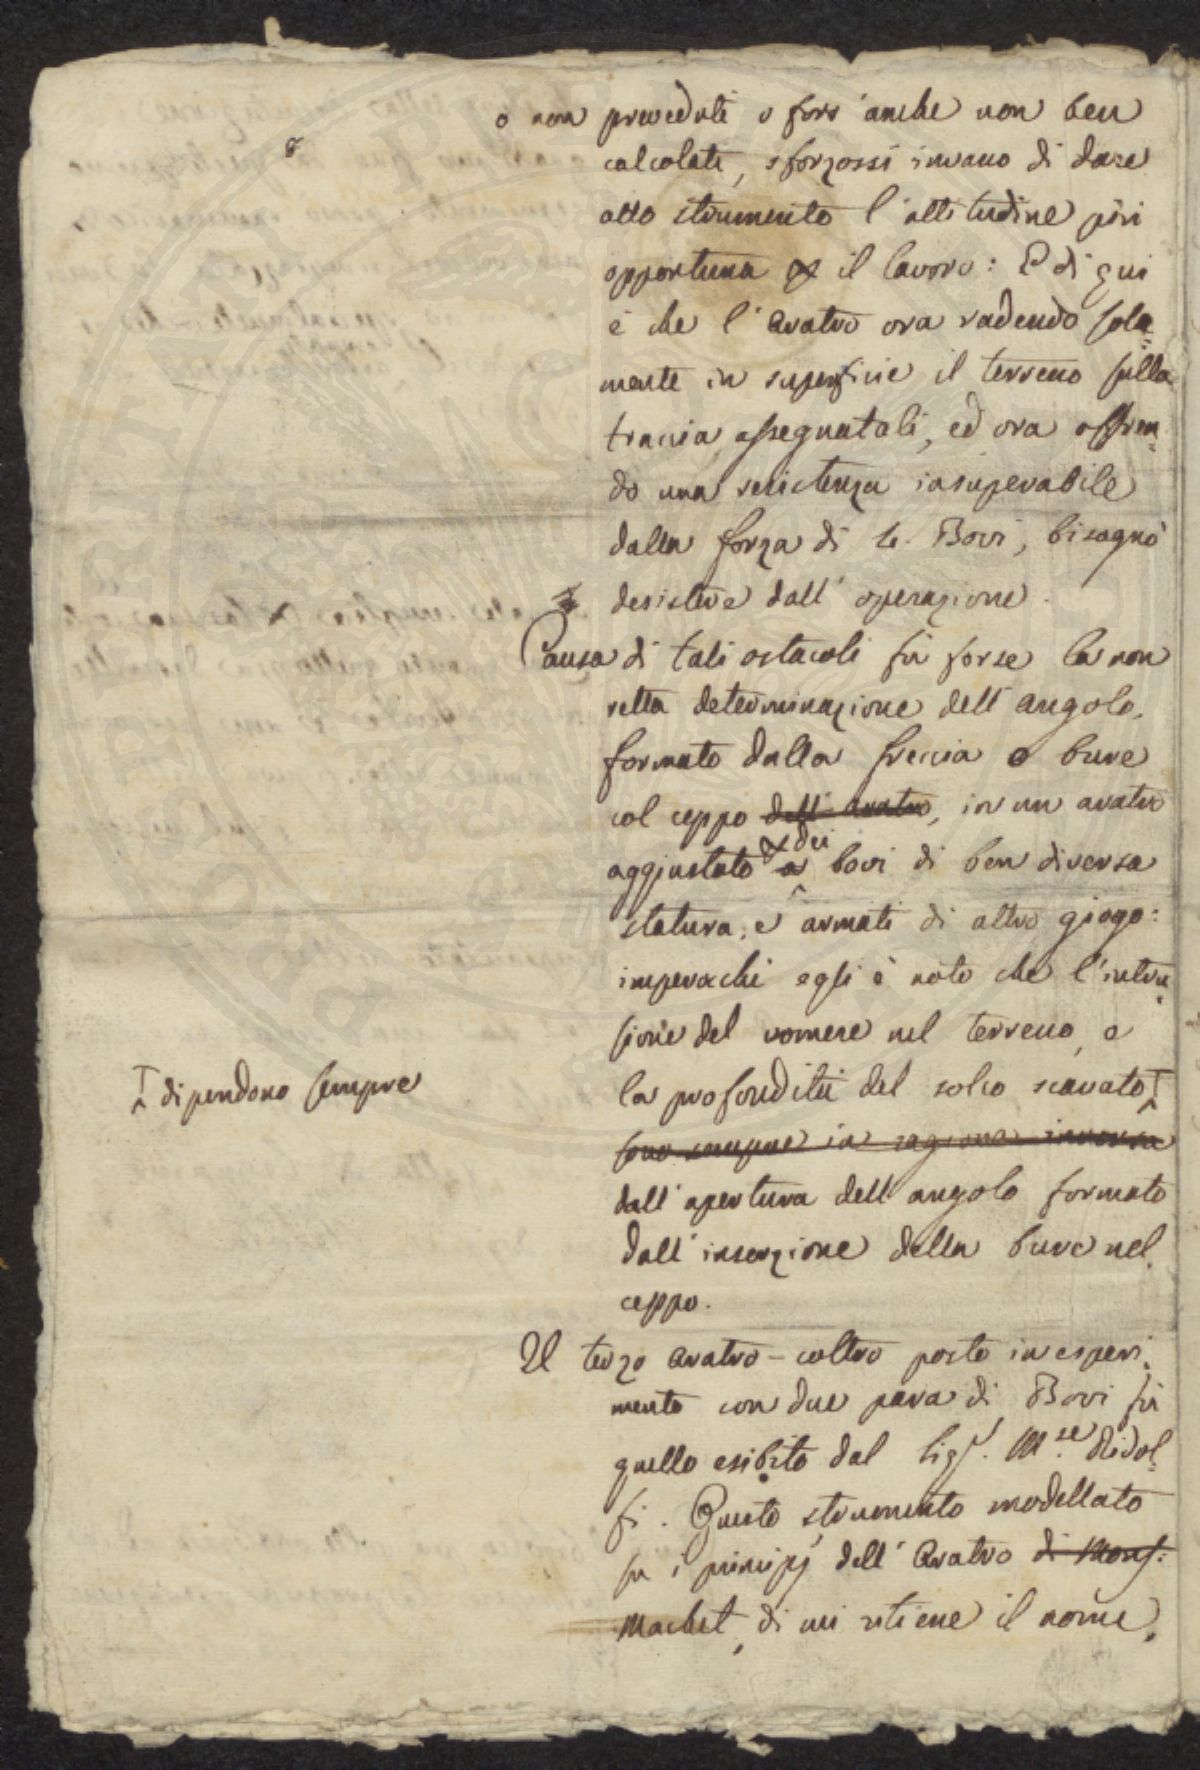 8
o non preceduti o fors' anche non ben
calcolati, sforzossi invano di dare
allo strumento l'attitudine più
opportuna per il lavoro: E di qui
è che l'aratro ora radendo sola=
mente in superficie il terreno sulla
traccia assegnatali, ed ora offren=
do una resistenza insuperabile
dalla forza di 4. Bovi, bisognò
desistere dall' operazione.
Causa di tali ostacoli fù forse la non
retta determinazione dell' angolo
formato dalla freccia o bure
col ceppo dell' aratro, in un aratro
per dei
aggiustato a bovi di ben diversa
statura, e armati di altro giogo:
imperochè egli è noto che l'intru=
sione del vomere nel terreno, e
la profondità del solco scavato
dipendono sempre
sono sempre in ragione inversa
dall' apertura dell' angolo formato
dall' inserzione della bure nel
ceppo.
Il terzo aratro-coltro posto in esperi=
mento con due para di Bovi fù
quello esibito dal Sigr. Mse. Ridol=
fi. Questo strumento modellato
su i principj dell' Aratro di Mons:
Machet, di cui ritiene il nome,